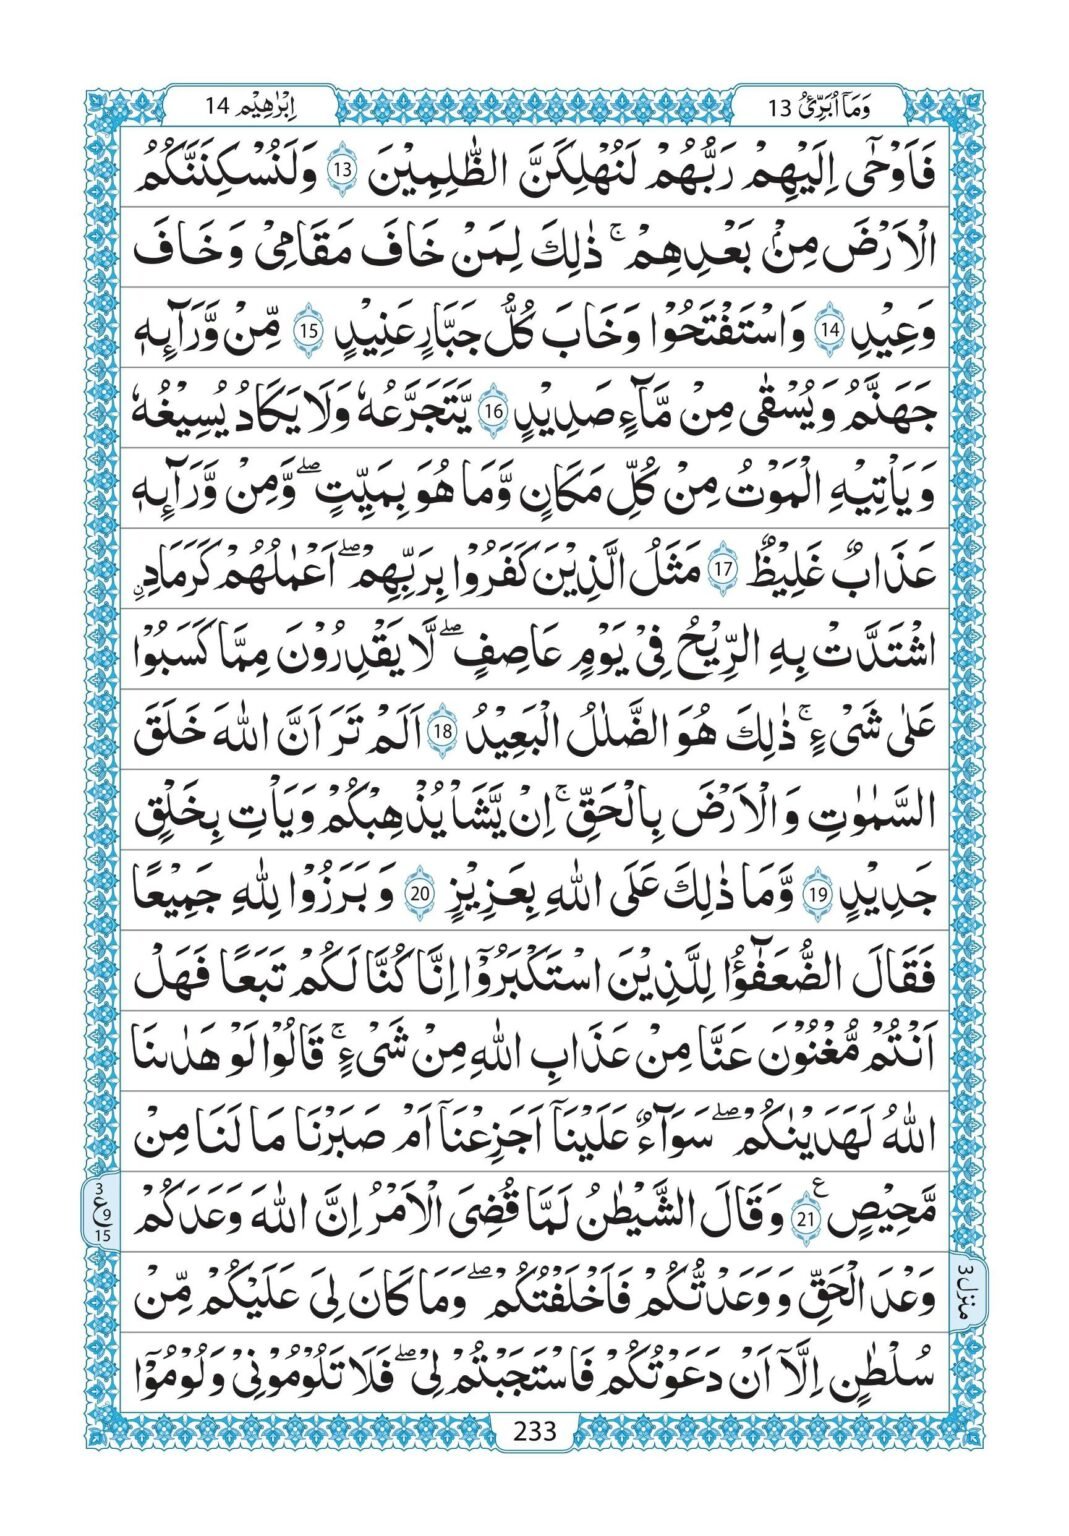 وَمَاۤ اُبَرِّئُ 13
اِبْرٰهِيْم 14
فَاَوْحٰۤى اِلَيْهِمْ رَبُّهُمْ لَنُهْلِكَنَّ الظّٰلِمِيْنَ 13 وَلَنُسْكِنَنَّكُمُ
الْاَرْضَ مِنْۢ بَعْدِهِمْ ۚ ذٰلِكَ لِمَنْ خَافَ مَقَامِيْ وَخَافَ
وَعِيْدِ 14 وَاسْتَفْتَحُوْا وَخَابَ كُلُّ جَبَّارٍ عَنِيْدٍ 15 مِّنْ وَّرَآئِهٖ
جَهَنَّمُ وَيُسْقٰى مِنْ مَّآءٍ صَدِيْدٍ 16 يَّتَجَرَّعُهٗ وَلَا يَكَادُ يُسِيْغُهٗ
وَيَاْتِيْهِ الْمَوْتُ مِنْ كُلِّ مَكَانٍ وَّمَا هُوَ بِمَيِّتٍ ۖ وَّمِنْ وَّرَآئِهٖ
عَذَابٌ غَلِيْظٌ 17 مَثَلُ الَّذِيْنَ كَفَرُوْا بِرَبِّهِمْ ۖ اَعْمٰلُهُمْ كَرَمَادِ ۨ
اشْتَدَّتْ بِهِ الرِّيْحُ فِيْ يَوْمٍ عَاصِفٍ ۖ لَّا يَقْدِرُوْنَ مِمَّا كَسَبُوْا
عَلٰى شَيْءٍ ۚ ذٰلِكَ هُوَ الضَّلٰلُ الْبَعِيْدُ 18 اَلَمْ تَرَ اَنَّ اللّٰهَ خَلَقَ
السَّمٰوٰتِ وَالْاَرْضَ بِالْحَقِّ ۚ اِنْ يَّشَاْ يُذْهِبْكُمْ وَيَاْتِ بِخَلْقٍ
جَدِيْدٍ 19 وَّمَا ذٰلِكَ عَلَى اللّٰهِ بِعَزِيْزٍ 20 وَبَرَزُوْا لِلّٰهِ جَمِيْعًا
فَقَالَ الضُّعَفٰٓؤُا لِلَّذِيْنَ اسْتَكْبَرُوْۤا اِنَّا كُنَّا لَكُمْ تَبَعًا فَهَلْ
اَنْتُمْ مُّغْنُوْنَ عَنَّا مِنْ عَذَابِ اللّٰهِ مِنْ شَيْءٍ ۚ قَالُوْا لَوْ هَدٰىنَا
اللّٰهُ لَهَدَيْنٰكُمْ ۖ سَوَآءٌ عَلَيْنَاۤ اَجَزِعْنَاۤ اَمْ صَبَرْنَا مَا لَنَا مِنْ
مَّحِيْصٍ ع 21 وَقَالَ الشَّيْطٰنُ لَمَّا قُضِيَ الْاَمْرُ اِنَّ اللّٰهَ وَعَدَكُمْ
3 ع 9 15
وَعْدَ الْحَقِّ وَوَعَدْتُّكُمْ فَاَخْلَفْتُكُمْ ۖ وَمَا كَانَ لِيَ عَلَيْكُمْ مِّنْ
منزل 3
سُلْطٰنٍ اِلَّاۤ اَنْ دَعَوْتُكُمْ فَاسْتَجَبْتُمْ لِيْ ۖ فَلَا تَلُوْمُوْنِيْ وَلُوْمُوْۤا
233